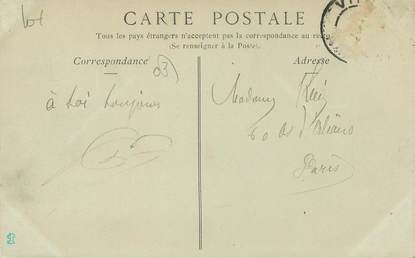 lot
CARTE POSTALE
Tous les pays étrangers n'acceptent pas la correspondance au
(Se renseigner à la Poste).
Correspondance
Adresse
03
à toi toujours
Madame
60 d'Orléans
Paris